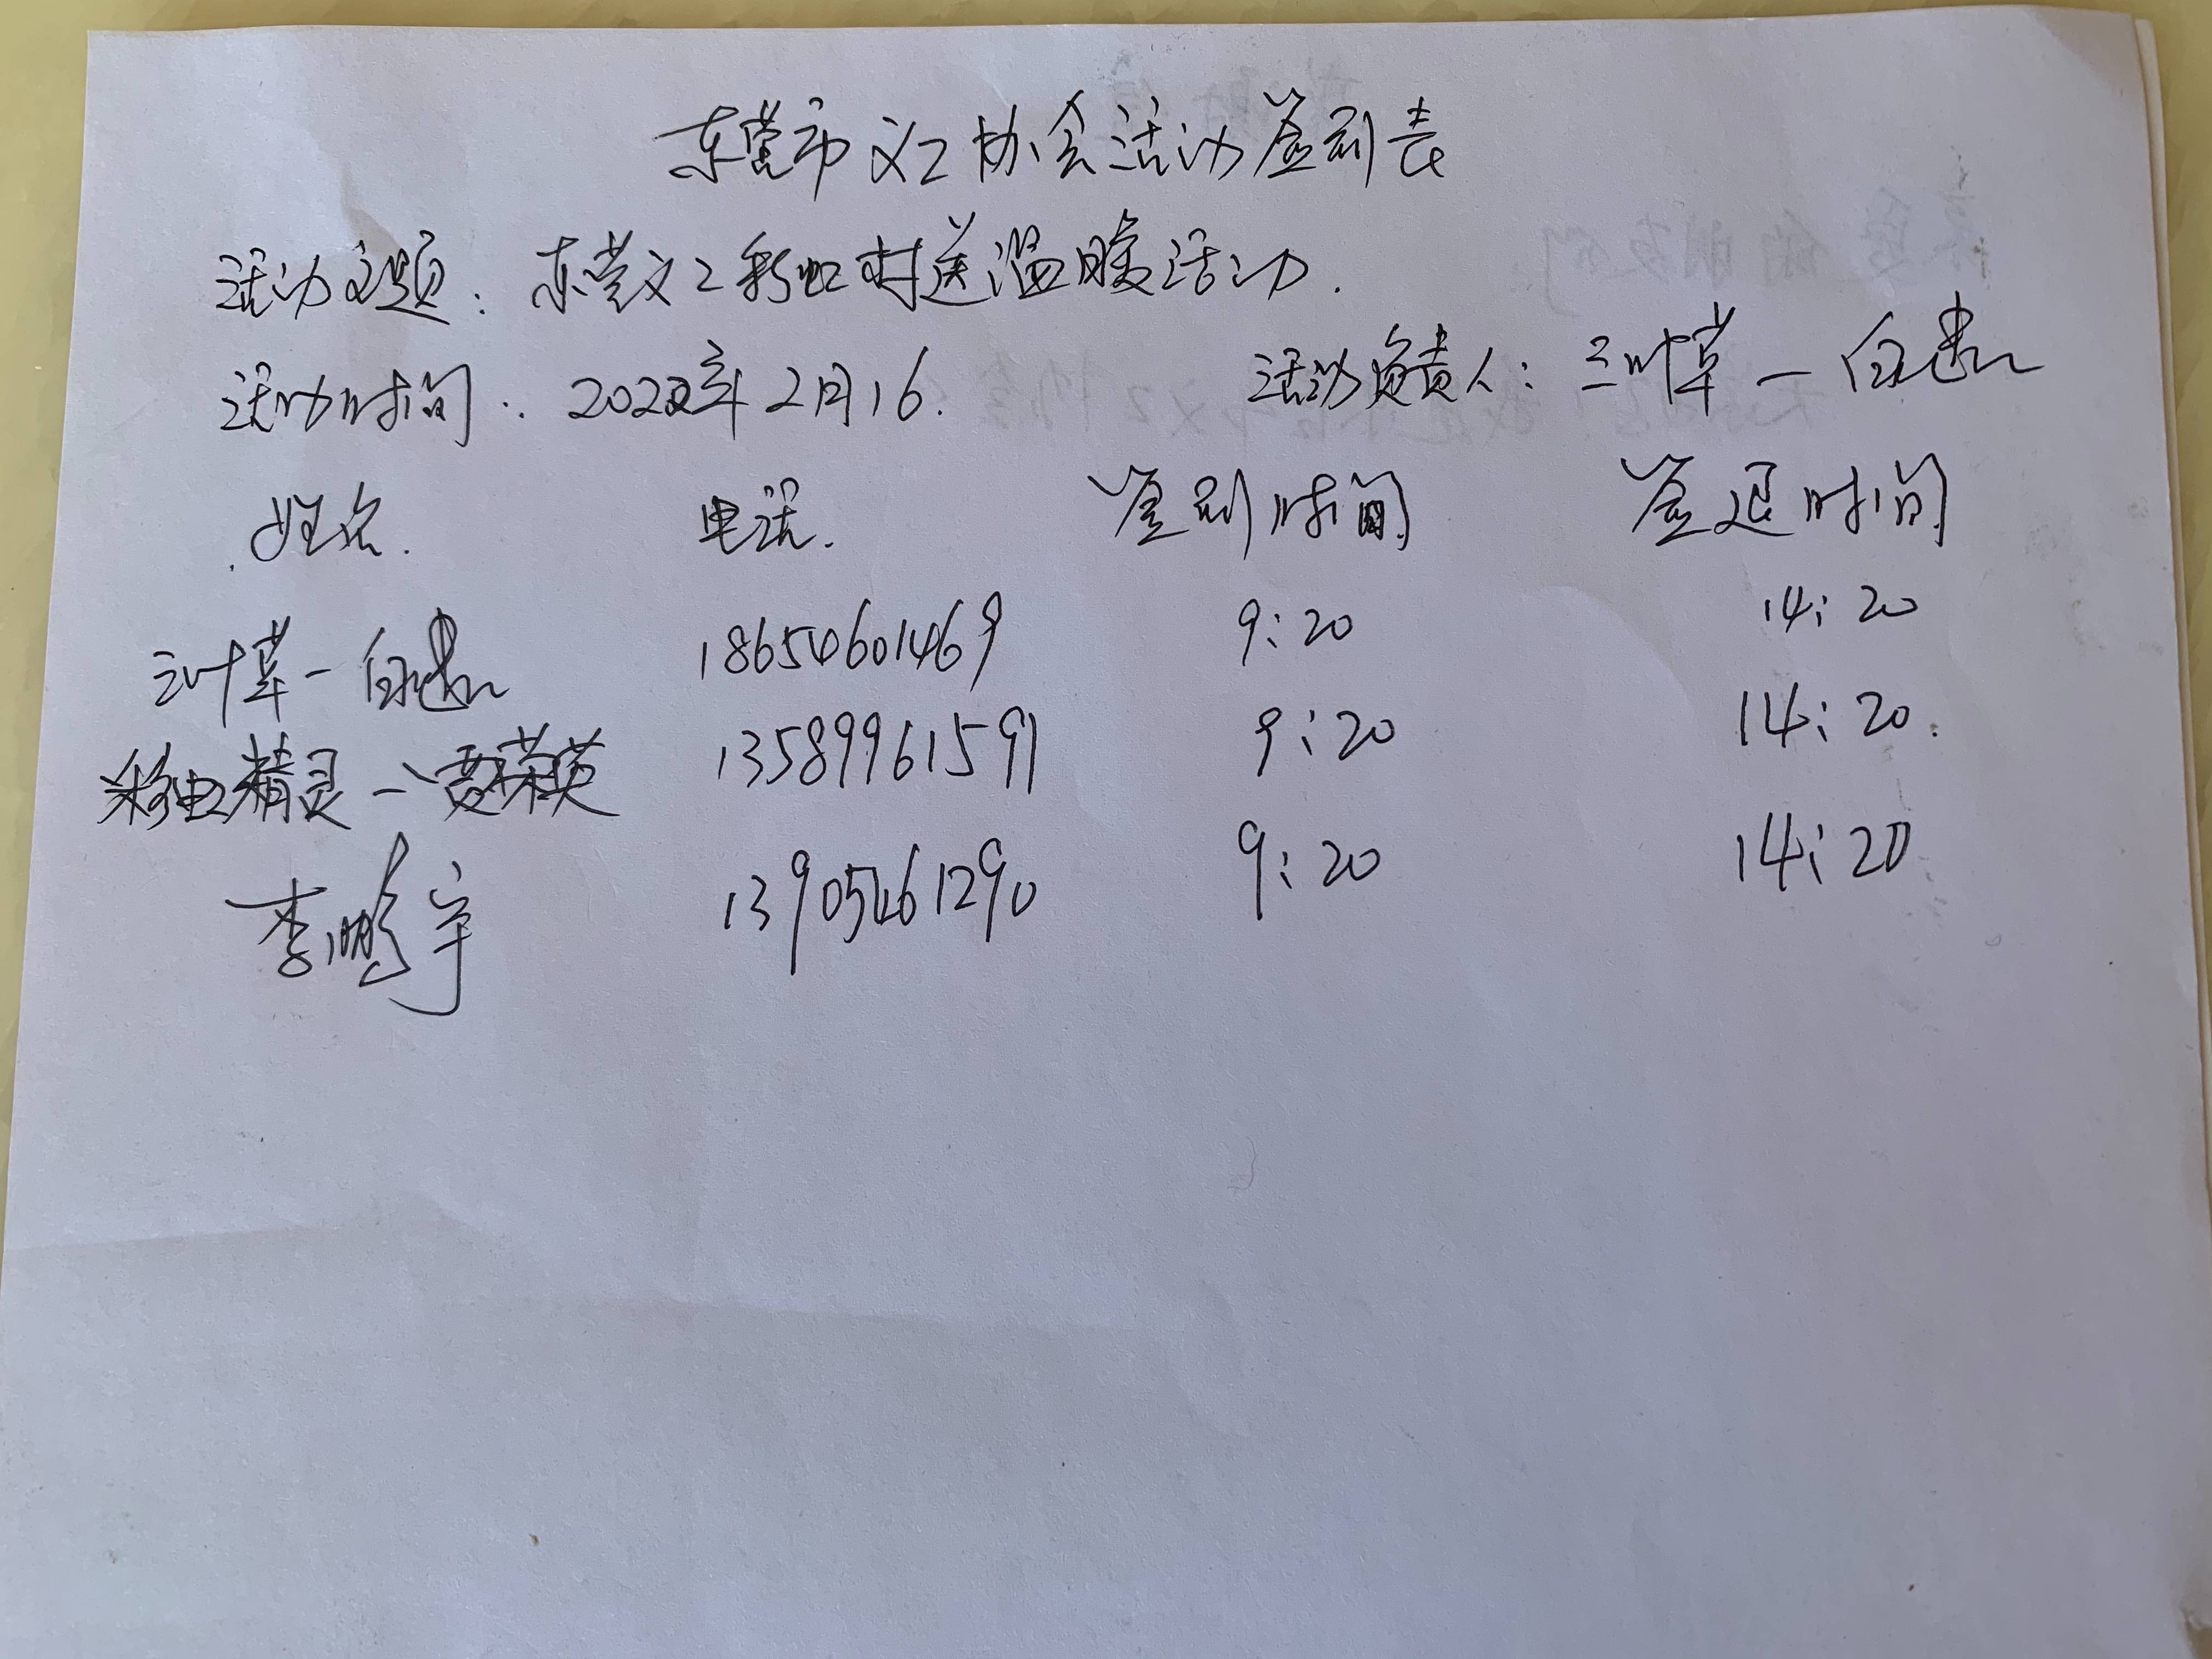 东营市义工协会活动签到表
活动主题：东营义工彩虹村送温暖活动.
活动时间：2022年2月16. 活动负责人：三叶草一白建
姓名. 电话. 签到时间 签退时间
三叶草一白建 18654601469 9:20 14:20
彩虹精灵一贾荣英 13589961591 9:20 14:20.
李鹏宇 13905461290 9:20 14:20